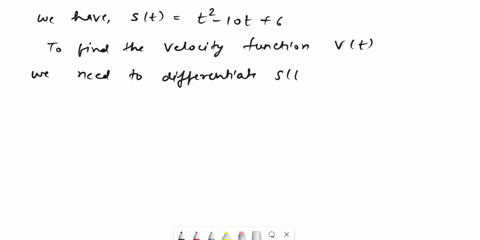 we have, s(t) = t² - 10t + 6
To find the velocity function v(t)
we need to differentiate s(